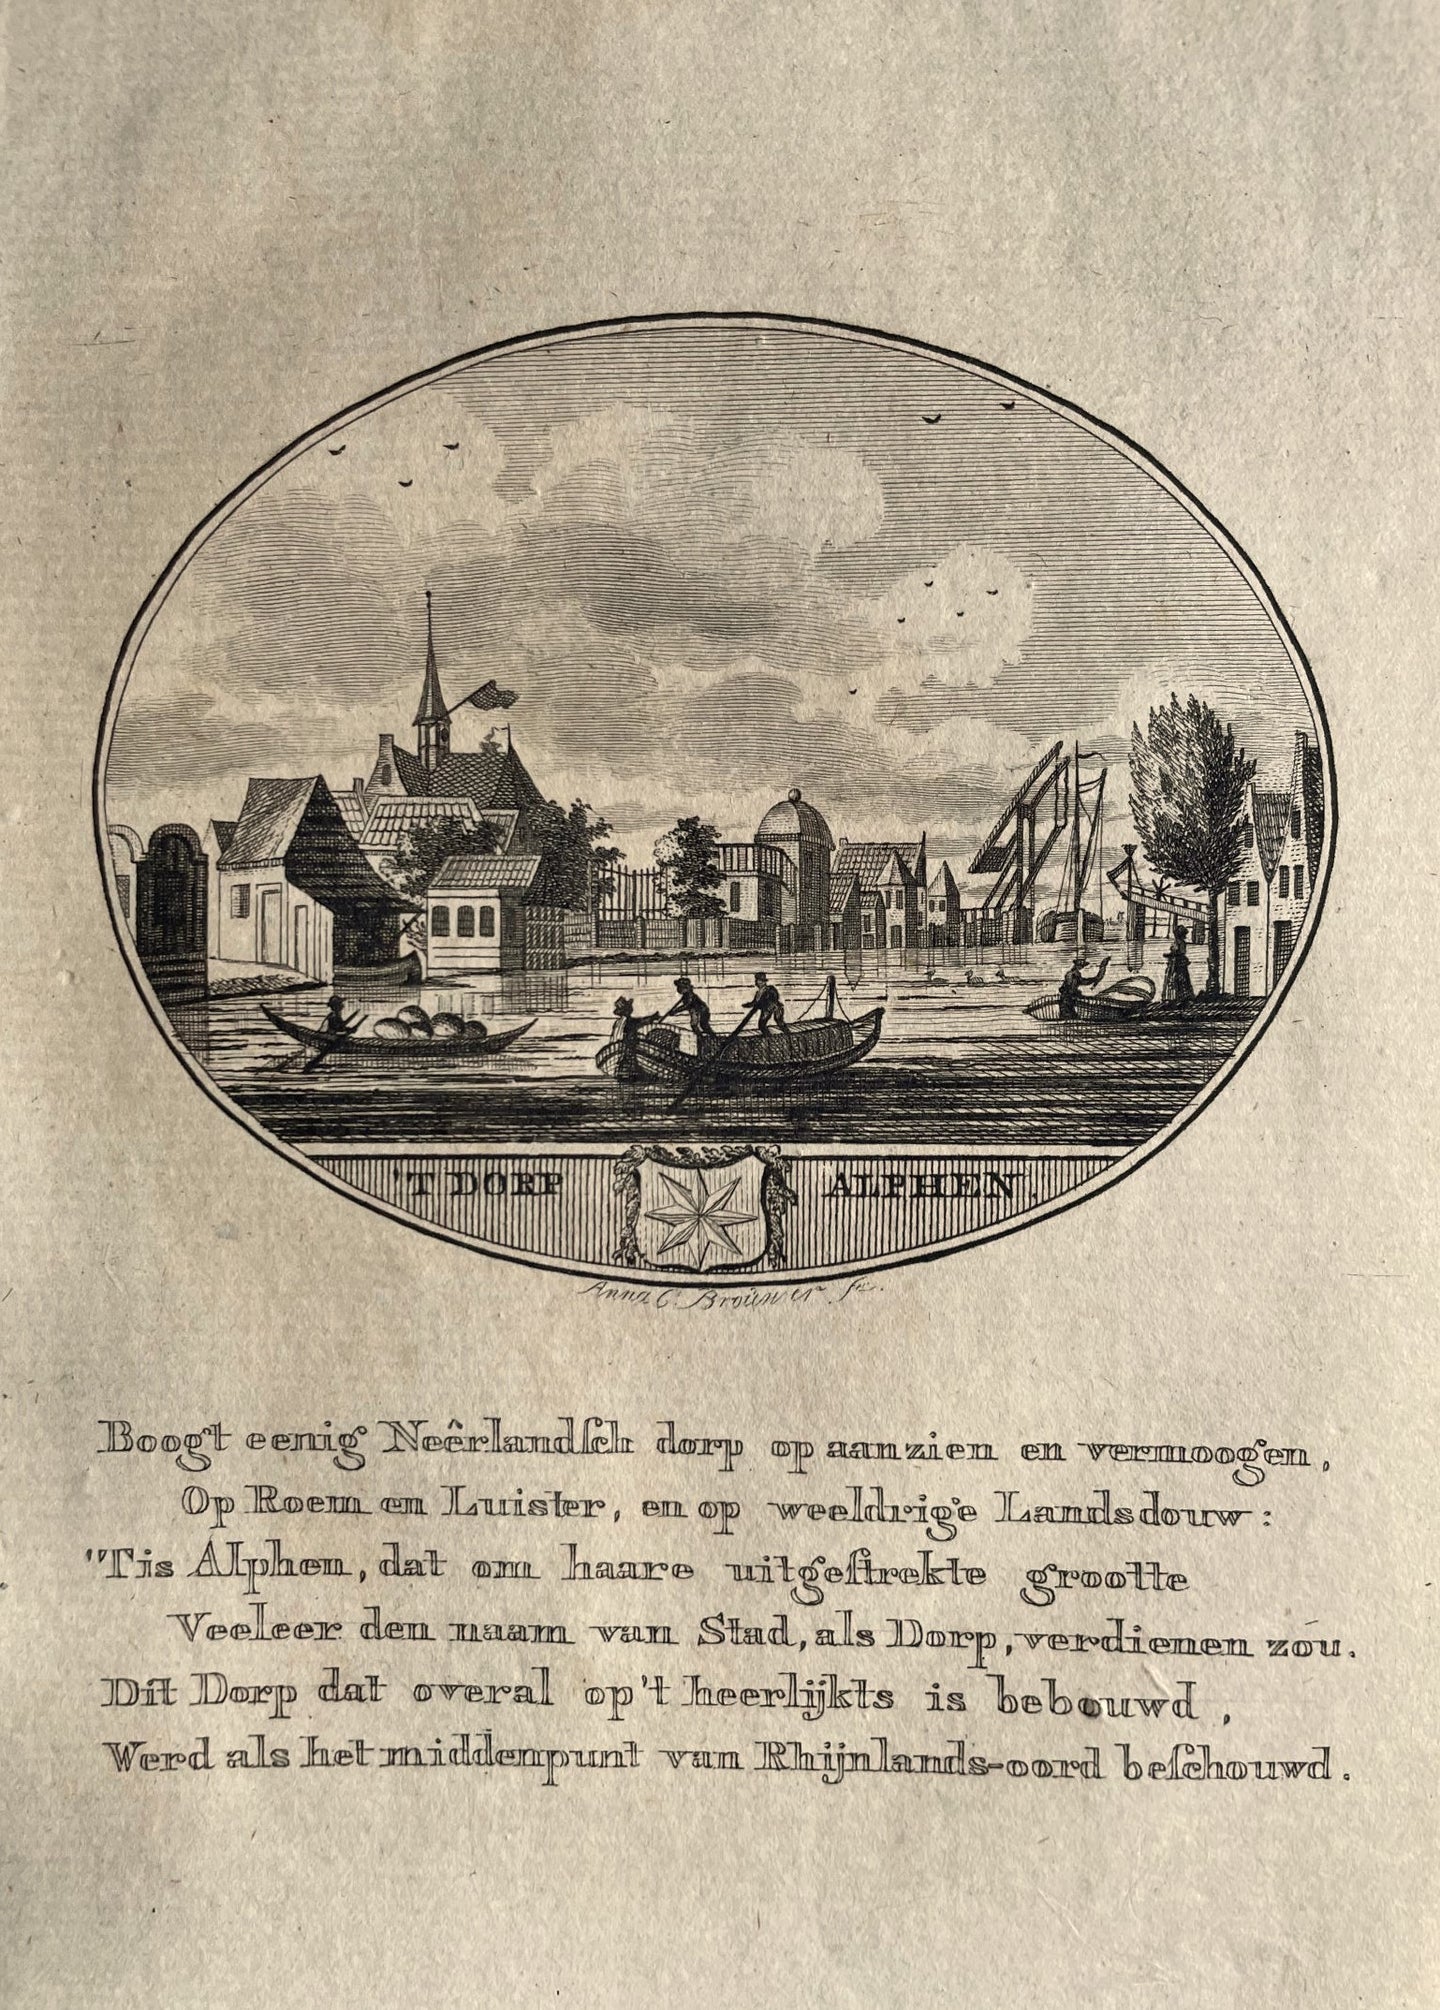 'T DORP ALPHEN.
Anna C. Broüwer fec.
Boogt eenig Neêrlandſch dorp op aanzien en vermoogen,
Op Roem en Luister, en op weeldrige Landsdouw:
"Tis Alphen, dat om haare uitgeſtrekte grootte
Veeleer den naam van Stad, als Dorp, verdienen zou.
Dit Dorp dat overal op't heerlijkts is bebouwd,
Werd als het middenpunt van Rhijnlands-oord beſchouwd.